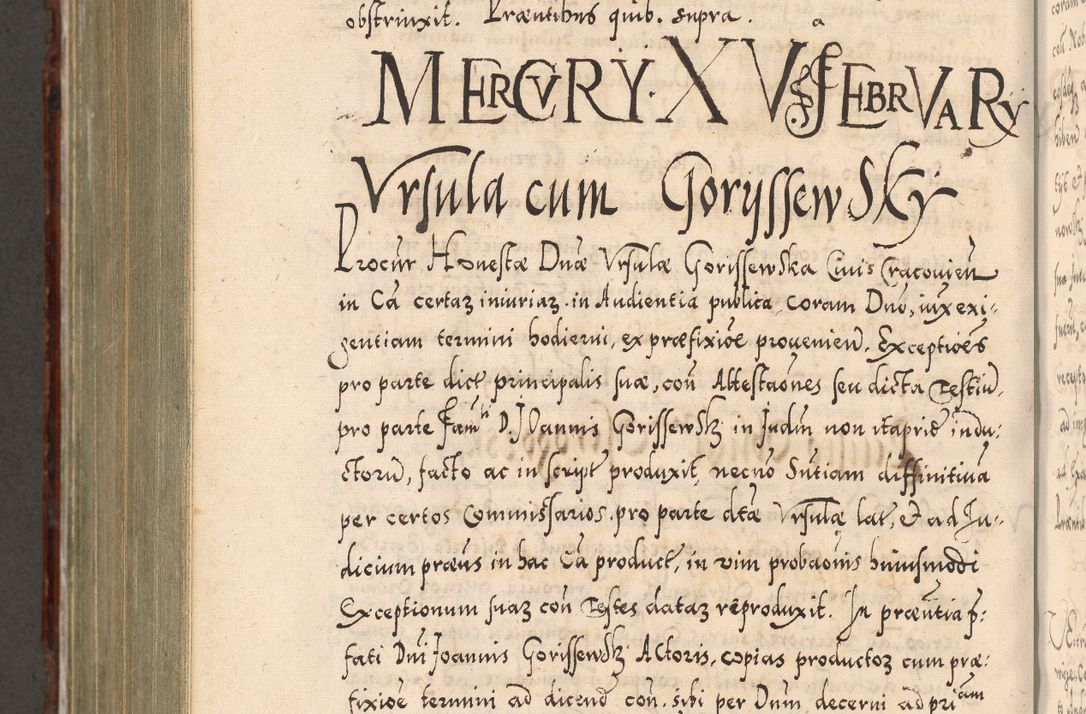 obstrinxit. Præntibus quib. supra.
MERCVRY. XV FEBRVARY
Vrsula cum GoryssewSky
Procur Honestæ Dnæ Vrsulæ GorissewSka Civis Cracovien
in Cā certaz iniuriaz. in Audientia publica, coram Dnō, iuxexi-
gentiam termini hodierni, ex præfixiōe provenień. Exceptioēs
pro parte dict principalis suæ, coñ Attestaōnes seu dicta Testiū,
pro parte Fam D. JOannis GorissewSk in Judin non ita prid indu:
ctorū, facto ac in script produxit, necnō Sntiam diffinitiva
per certos Commissarios. pro parte dtæ Vrsulæ lat, Et ad Ju-
dicium præns in hac Cā product, in vim probaōnis huiusmodi
Exceptionum suaz coñ Testes dataz reproduxit. In præntia p-
fati Dni Joannis GorissewSk Actoris, copias productoz cum præ:
fixiōe termini ad dicend coñ. sibi per Dnum decerni ad priam